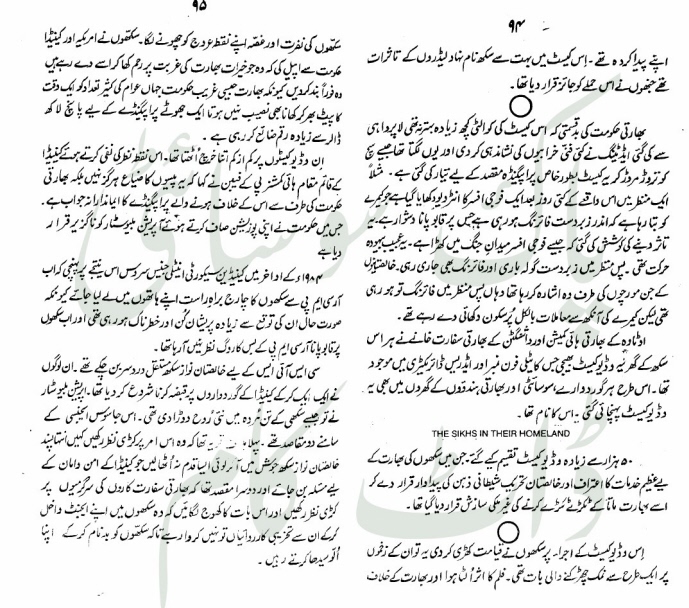 ۹۴
اپنے پیدا کردہ تھے۔ اِس کیسٹ میں بہت سے سکھ نام نہاد لیڈروں کے تاثرات
تھے جنھوں نے اس حملے کو جائز قرار دیا تھا۔
بھارتی حکومت کی بدقسمتی کہ اس کیسٹ کی کوالٹی کچھ زیادہ بہتر نہ تھی لاپرواہی
سے کی گئی ایڈیٹنگ نے کئی فنی خرابیوں کی نشاندہی کر دی اور یوں لگتا تھا جیسے سچ
کو توڑ مروڑ کر یہ کیسٹ بطور خاص پراپیگنڈہ مقصد کے لیے تیار کی گئی ہے۔ مثلاً
ایک منظر میں اس واقعے کے کئی روز بعد ایک فوجی افسر کا انٹرویو دکھایا گیا ہے جو کیمرے
کو بتا رہا ہے کہ اندر زبردست فائرنگ ہو رہی ہے جس پر قابو پانا دشوار ہے۔ یہ
تاثر دینے کی کوشش کی گئی کہ جیسے فوجی افسر میدانِ جنگ میں کھڑا ہے۔ یہ عجیب بیہودہ
حرکت تھی۔ پس منظر میں زبردست گولہ باری اور فائرنگ بھی جاری رہی۔ خالصتانیوں
کے جن مورچوں کی طرف وہ اشارہ کر رہا تھا وہاں پس منظر میں فائرنگ تو ہو رہی
تھی لیکن کیمرے کی آنکھ سے معاملات بالکل پُرسکون دکھائی دے رہے تھے۔
اوٹاوہ کے بھارتی ہائی کمیشن اور واشنگٹن کے بھارتی سفارت خانے نے ہر اس
سکھ کے گھر یہ وڈیو کیسٹ بھیجی جس کا ٹیلی فون نمبر اور ایڈریس ڈائریکٹری میں موجود
تھا۔ اس طرح ہر گوردوارے، سوسائٹی اور بھارتی ہندوؤں کے گھروں میں بھی یہ
وڈیو کیسٹ پہنچائی گئی۔ اس کا نام تھا۔
THE SIKHS IN THEIR HOMELAND
۵۰ ہزار سے زیادہ وڈیو کیسٹ تقسیم کیے گئے۔ جن میں سکھوں کی بھارت کے
لیے عظیم خدمات کا اعتراف اور خالصتان تحریک شیطانی ذہن کی پیداوار قرار دے کر
اسے بھارت ماتا کے ٹکڑے ٹکڑے کرنے کی غیر ملکی سازش قرار دیا گیا تھا۔
اِس وڈیو کیسٹ کے اجراء پر سکھوں نے قیامت کھڑی کر دی یہ تو ان کے زخموں
پر ایک طرح سے نمک چھڑکنے والی بات تھی۔ فلم کا اثر اُلٹا ہوا اور بھارت کے خلاف
۹۵
سکھوں کی نفرت اور غصّہ اپنے نقطہ عروج کو چھونے لگا۔ سکھوں نے امریکہ اور کینیڈا
حکومت سے اپیل کی کہ وہ جو خیرات بھارت کی غربت پر رحم کھا کر اسے دے رہے ہیں
وہ فوراً بند کر دیں کیونکہ بھارت جیسی غریب حکومت جہاں عوام کی کثیر تعداد کو ایک وقت
کا پیٹ بھر کر کھانا بھی نصیب نہیں ہوتا ایک جھوٹے پراپیگنڈے کے لیے پانچ لاکھ
ڈالر سے زیادہ رقم ضائع کر رہی ہے۔
ان وڈیو کیسٹوں پر کم از کم اتنا خرچ اُٹھتا تھا۔ اس نقطہ نظر کی نفی کرتے ہوئے کینیڈا
کے قائم مقام ہائی کمشنر پی کے فبین نے کہا کہ یہ پیسوں کا ضیاع ہرگز نہیں بلکہ بھارتی
حکومت کی طرف سے اس کے خلاف ہونے والے پراپیگنڈے کا ایماندارانہ جواب ہے۔
جس میں حکومت نے اپنی پوزیشن صاف کرتے ہوئے آپریشن بلیو سٹار کو ناگزیر قرار
دیا ہے
۱۹۸۴ء کے اواخر میں کینیڈین سیکورٹی انٹیلی جنس سروس اس نتیجے پر پہنچی کہ اب
آر سی ایم پی سے سکھوں کا چارج براہِ راست اپنے ہاتھوں میں لے لیا جائے کیونکہ
صورت حال اُن کی توقع سے زیادہ پریشان کُن اور خطرناک ہو رہی تھی اور اب سکھوں
پر قابو پانا آر سی ایم پی کے بس کا روگ نظر نہیں آ رہا تھا۔
سی ایس آئی ایس کے لیے خالصتان نواز سکھ مستقل دردِ سر بن چکے تھے۔ ان لوگوں
نے ایک ایک کر کے کینیڈا کے گوردواروں پر قبضہ کرنا شروع کر دیا تھا۔ آپریشن بلیو سٹار
نے تو جیسے سکھی کے تنِ مُردہ میں نئی رُوح دوڑا دی تھی۔ اس جاسوس ایجنسی کے
سامنے دو مقاصد تھے۔ پہلا تو یہ تھا کہ وہ اس امر پر کڑی نظر رکھیں کہیں انتہا پسند
خالصتان نواز سکھ جوش میں آ کر کوئی ایسا قدم نہ اُٹھا لیں جو کینیڈا کے امن و امان کے
لیے مسئلہ بن جائے اور دوسرا مقصد تھا کہ بھارتی سفارت کاروں کی سرگرمیوں پر
کڑی نظر رکھیں اور اس بات کا کھوج لگائیں کہ وہ سکھوں میں اپنے ایجنٹ داخل
کر کے ان سے تخریبی کارروائیاں تو نہیں کروا رہے تاکہ سکھوں کو بدنام کر کے اپنا
اُلّو سیدھا کرتے رہیں۔